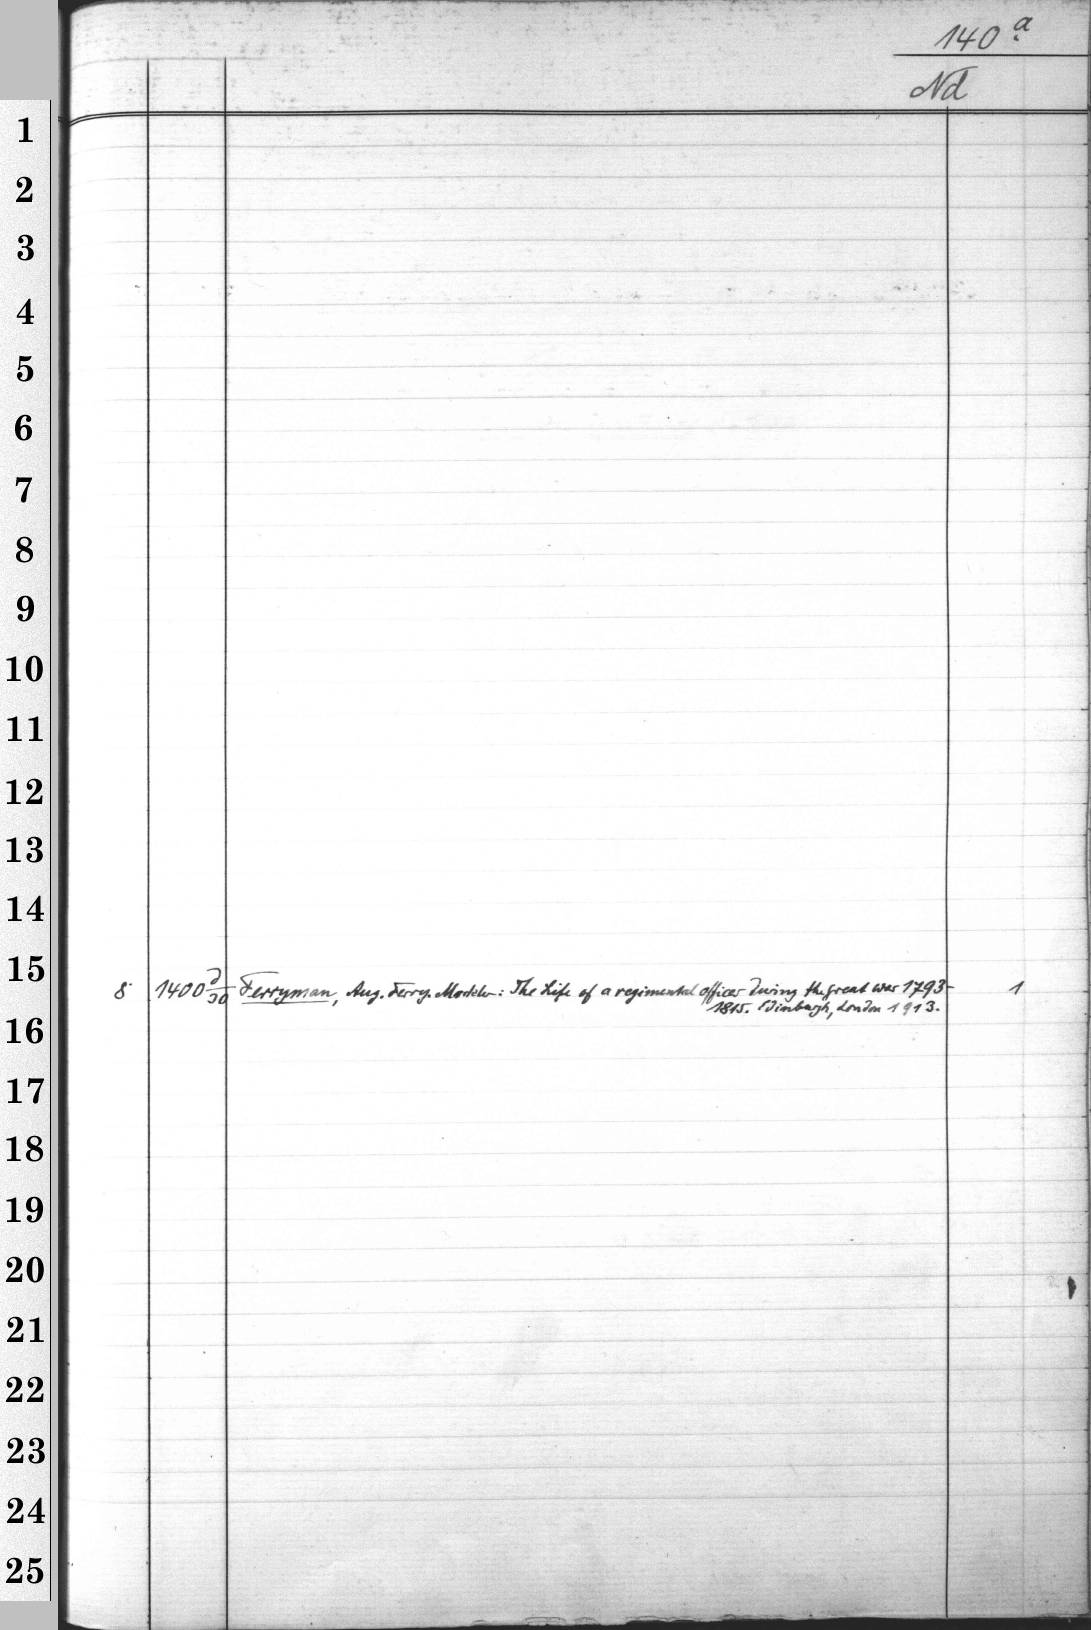 140 a
Nd
1
2
3
4
5
6
7
8
9
10
11
12
13
14
15
8 1400 d/30 Ferryman, Aug. Ferry. Mockler: The Life of a regimental officer during the great war 1793- 1
1815. Edinburgh, London 1913.
16
17
18
19
20
21
22
23
24
25